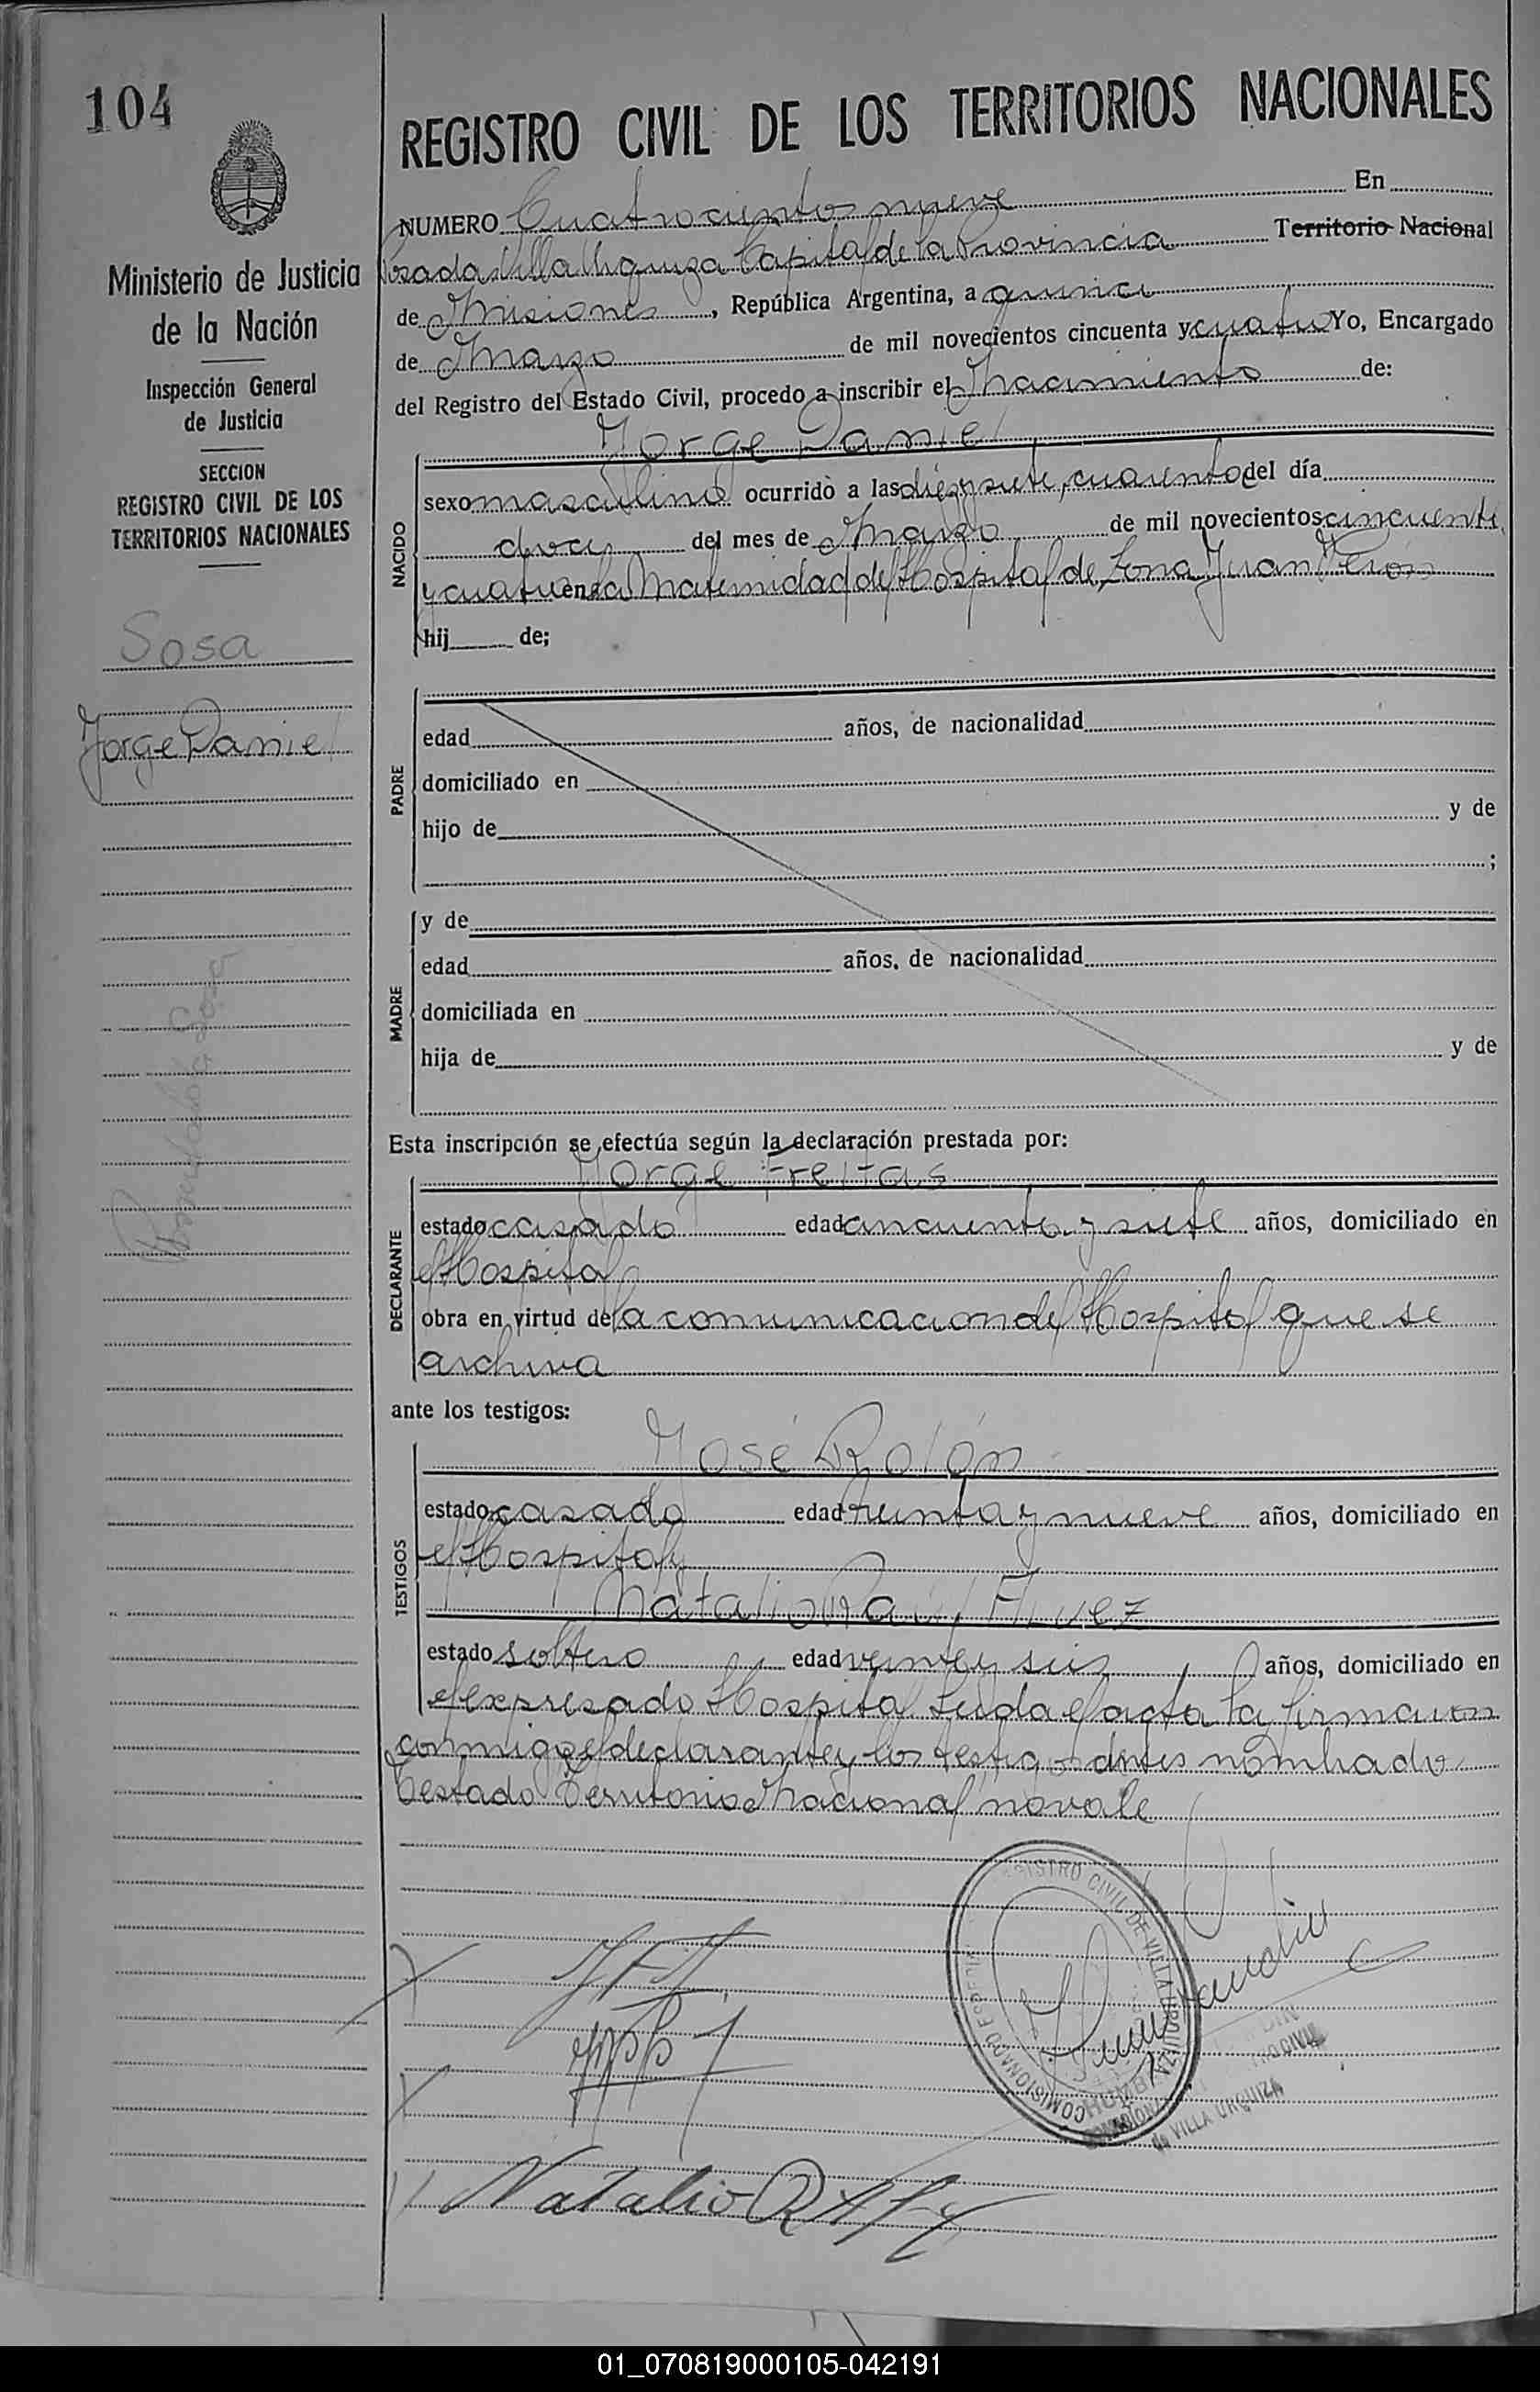 104
Ministerio de Justicia
de la Nación
Inspección General
de Justicia
SECCION
REGISTRO CIVIL DE LOS
TERRITORIOS NACIONALES
Sosa
Jorge Daniel
REGISTRO CIVIL DE LOS TERRITORIOS NACIONALES
NUMERO Cuatrocientos nueve En
Posadas Villa Urquiza Capital de la Provincia Territorio Nacional
de Misiones, República Argentina, a quince
de Marzo de mil novecientos cincuenta y cuatro Yo, Encargado
del Registro del Estado Civil, procedo a inscribir el Nacimiento de:
Jorge Daniel
NACIDO
sexo masculino ocurrido a las diez y siete, cuarenta del día
doce del mes de Marzo de mil novecientos cincuenta
y cuatro en la Maternidad del Hospital de Zona Juan Perón
hij de;
PADRE
edad años, de nacionalidad
domiciliado en
hijo de y de
;
MADRE
y de
edad años, de nacionalidad
domiciliada en
hija de y de
Esta inscripción se efectúa según la declaración prestada por:
Jorge Freitas
DECLARANTE
estado casado edad cincuenta y siete años, domiciliado en
el Hospital
obra en virtud de la comunicacion del Hospital que se
archiva
ante los testigos:
José Rolón
TESTIGOS
estado casado edad treinta y nueve años, domiciliado en
el Hospital y
Natalio Raúl
estado soltero edad veinte y seis años, domiciliado en
el expresado Hospital Leida el acta la firmaron
conmigo el declarante y los testigos antes nombrados
Testado Territorio Nacional no vale
REGISTRO CIVIL DE VILLA URQUIZA
COMISIONADO
de VILLA URQUIZA
Natalio R
01_070819000105-042191